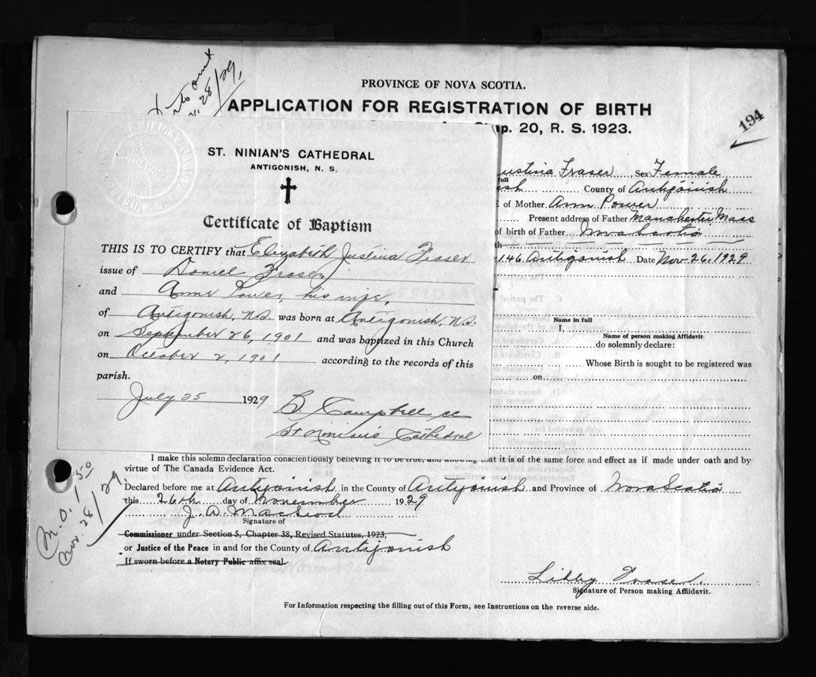 28/29,
PROVINCE OF NOVA SCOTIA.
APPLICATION FOR REGISTRATION OF BIRTH
ap. 20, R. S. 1923.
194
ustina Fraser Sex Female
ish County of Antigonish
of Mother Ann Power
Present address of Father Manchester Mass
of birth of Father Nova Scotia
146 Antigonish Date Nov 26, 1929
Name in full
I,
Name of person making Affidavit
do solemnly declare:
Whose Birth is sought to be registered was
on
ST. NINIAN'S CATHEDRAL
ANTIGONISH, N. S.
Certificate of Baptism
THIS IS TO CERTIFY that Elizabeth Justina Fraser
issue of Daniel Fraser,
and Anne Power, his wife,
of Antigonish, N.S. was born at Antigonish, N.S.
on September 26, 1901 and was baptized in this Church
on October 2, 1901 according to the records of this
parish.
July 25 1929 B. Campbell cc
St Ninian's Cathedral
I make this solemn declaration conscientiously believing it to be true, and knowing that it is of the same force and effect as if made under oath and by
virtue of The Canada Evidence Act.
Declared before me at Antigonish in the County of Antigonish and Province of Nova Scotia
this 26th day of November 1929
J. A. MacLeod
Signature of
Commissioner under Section 5, Chapter 38, Revised Statutes, 1923,
or Justice of the Peace in and for the County of Antigonish
If sworn before a Notary Public affix seal.
Libby Fraser.
Signature of Person making Affidavit.
For Information respecting the filling out of this Form, see Instructions on the reverse side.
M.O. 1.50
Nov. 28/29